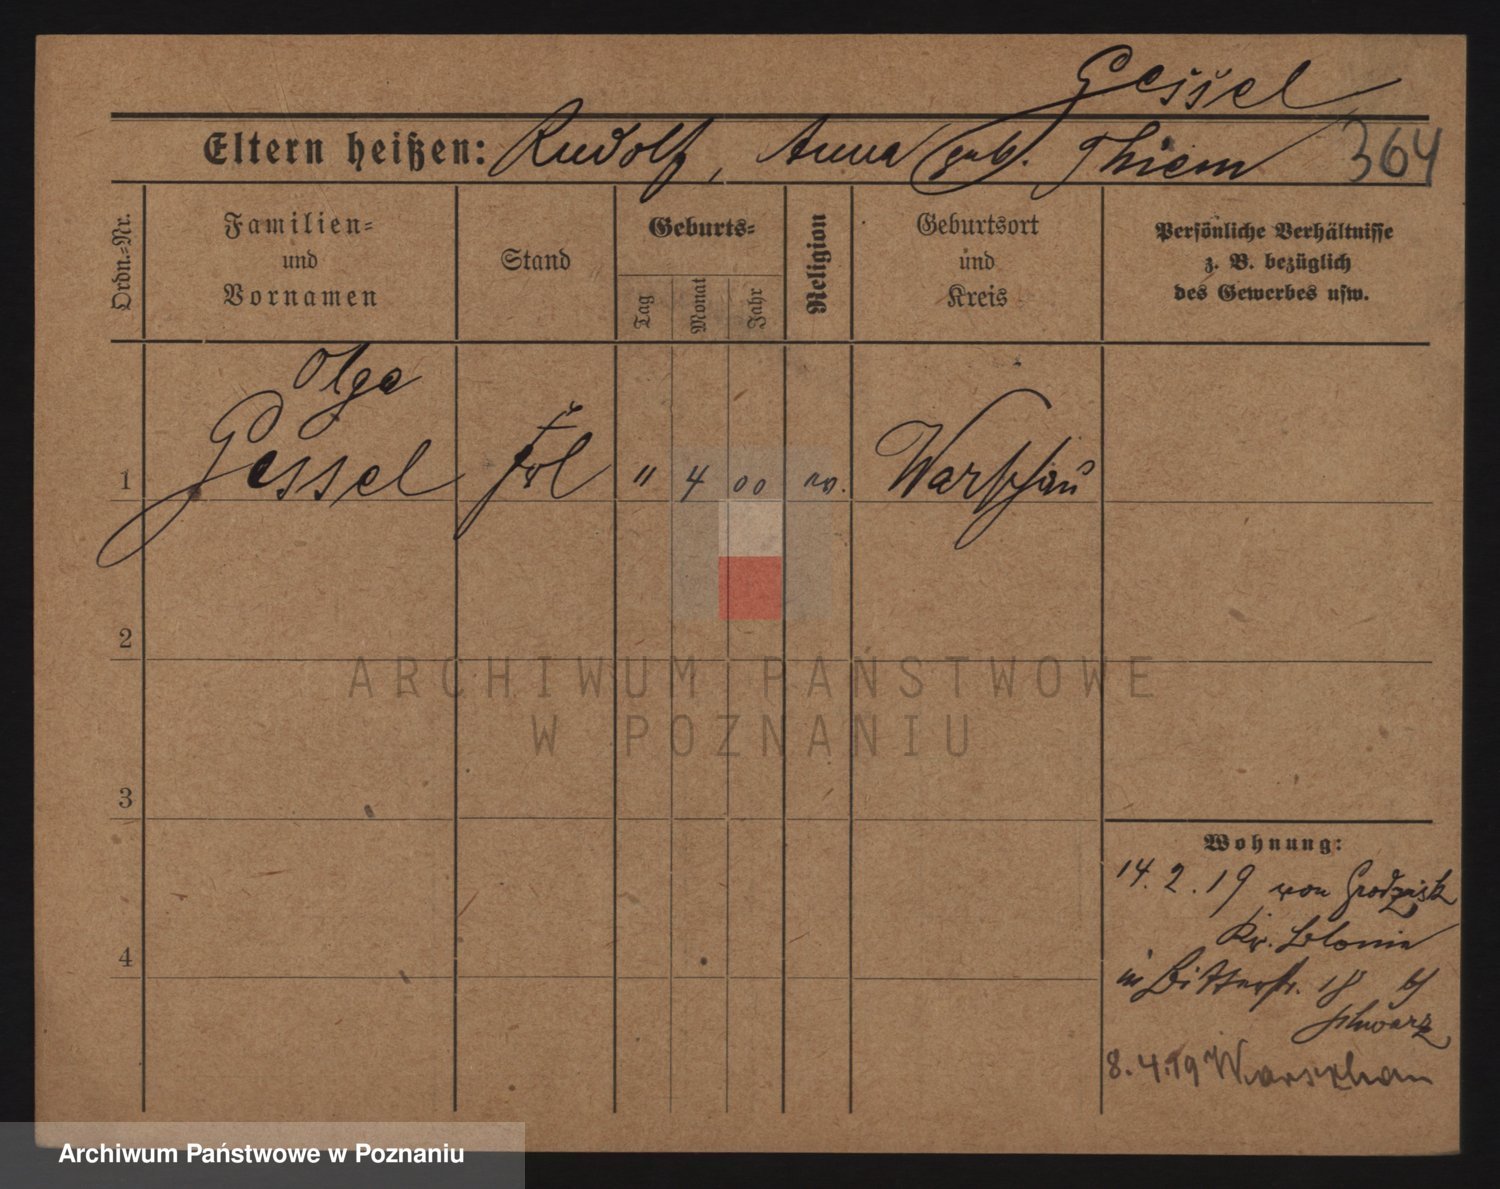 Gessel
Eltern heißen: Rudolf, Anna geb. Thiem 364
Ordn.-Nr.
Familien-
und
Vornamen
Stand
Geburts-
Tag
Monat
Jahr
Religion
Geburtsort
und
Kreis
Persönliche Verhältnisse
z. B. bezüglich
des Gewerbes usw.
Olga
1 Gessel Frl " 4 00 ev. Warschau
2
ARCHIWUM PAŃSTWOWE
W POZNANIU
3
Wohnung:
14. 2. 19 von Grodzisk
Kr. Blonie
4
in Ritterstr. 18 b/
Schwarz
8.4.19 Warschau
Archiwum Państwowe w Poznaniu